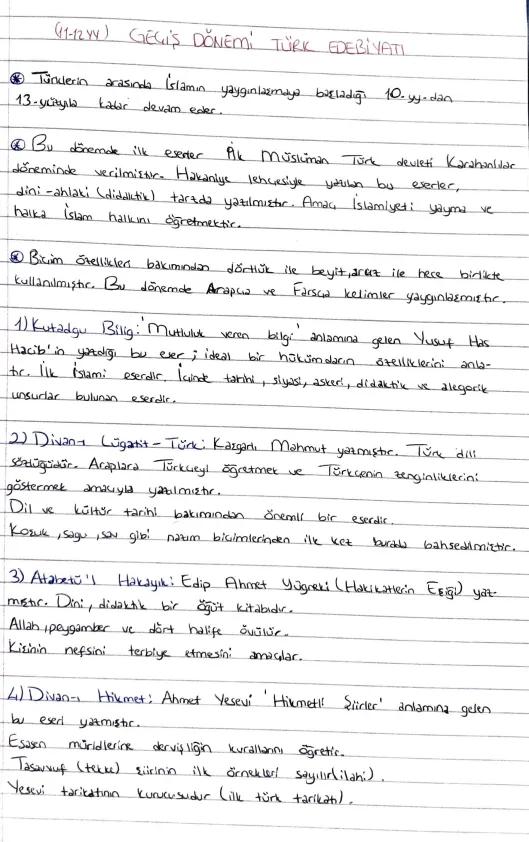 (11-12 yy) GEÇİŞ DÖNEMİ TÜRK EDEBİYATI
Türklerin arasında İslamın yaygınlaşmaya başladığı 10.yy.dan
13.yüzyıla kadar devam eder.
Bu dönemde ilk eserler ilk Müslüman Türk devleti Karahanlılar
döneminde verilmiştir. Hakaniye lehçesiyle yazılan bu eserler,
dini-ahlaki (didaktik) tarzda yazılmıştır. Amaç, İslamiyeti yayma ve
halka İslam halkını öğretmektir.
Biçim özellikleri bakımından dörtlük ile beyit, aruz ile hece birlikte
kullanılmıştır. Bu dönemde Arapça ve Farsça kelimler yaygınlaşmıştır.
1) Kutadgu Bilig: 'Mutluluk veren bilgi' anlamına gelen Yusuf Has
Hacib'in yazdığı bu eser; ideal bir hükümdarın özelliklerini anla-
tır. İlk İslami eserdir. İçinde tarihi, siyasi, askeri, didaktik ve alegorik
unsurlar bulunan eserdir.
2) Divan-ı Lügatit-Türk: Kaşgarlı Mahmut yazmıştır. Türk dili
sözlüğüdür. Araplara Türkçeyi öğretmek ve Türkçenin zenginliklerini
göstermek amacıyla yazılmıştır.
Dil ve kültür tarihi bakımından önemli bir eserdir.
Koşuk, sagu, sav gibi nazım biçimlerinden ilk kez burada bahsedilmiştir.
3) Atabetü'l Hakayık: Edip Ahmet Yügneki (Hakikatlerin Eşiği) yaz-
mıştır. Dini, didaktik bir öğüt kitabıdır.
Allah, peygamber ve dört halife övülür.
Kişinin nefsini terbiye etmesini amaçlar.
4) Divan-ı Hikmet: Ahmet Yesevi 'Hikmetli Şiirler' anlamına gelen
bu eseri yazmıştır.
Esasen müridlerine dervişliğin kurallarını öğretir.
Tasavvuf (tekke) şiirinin ilk örnekleri sayılır (ilahi).
Yesevi tarikatının kurucusudur (ilk türk tarikatı).